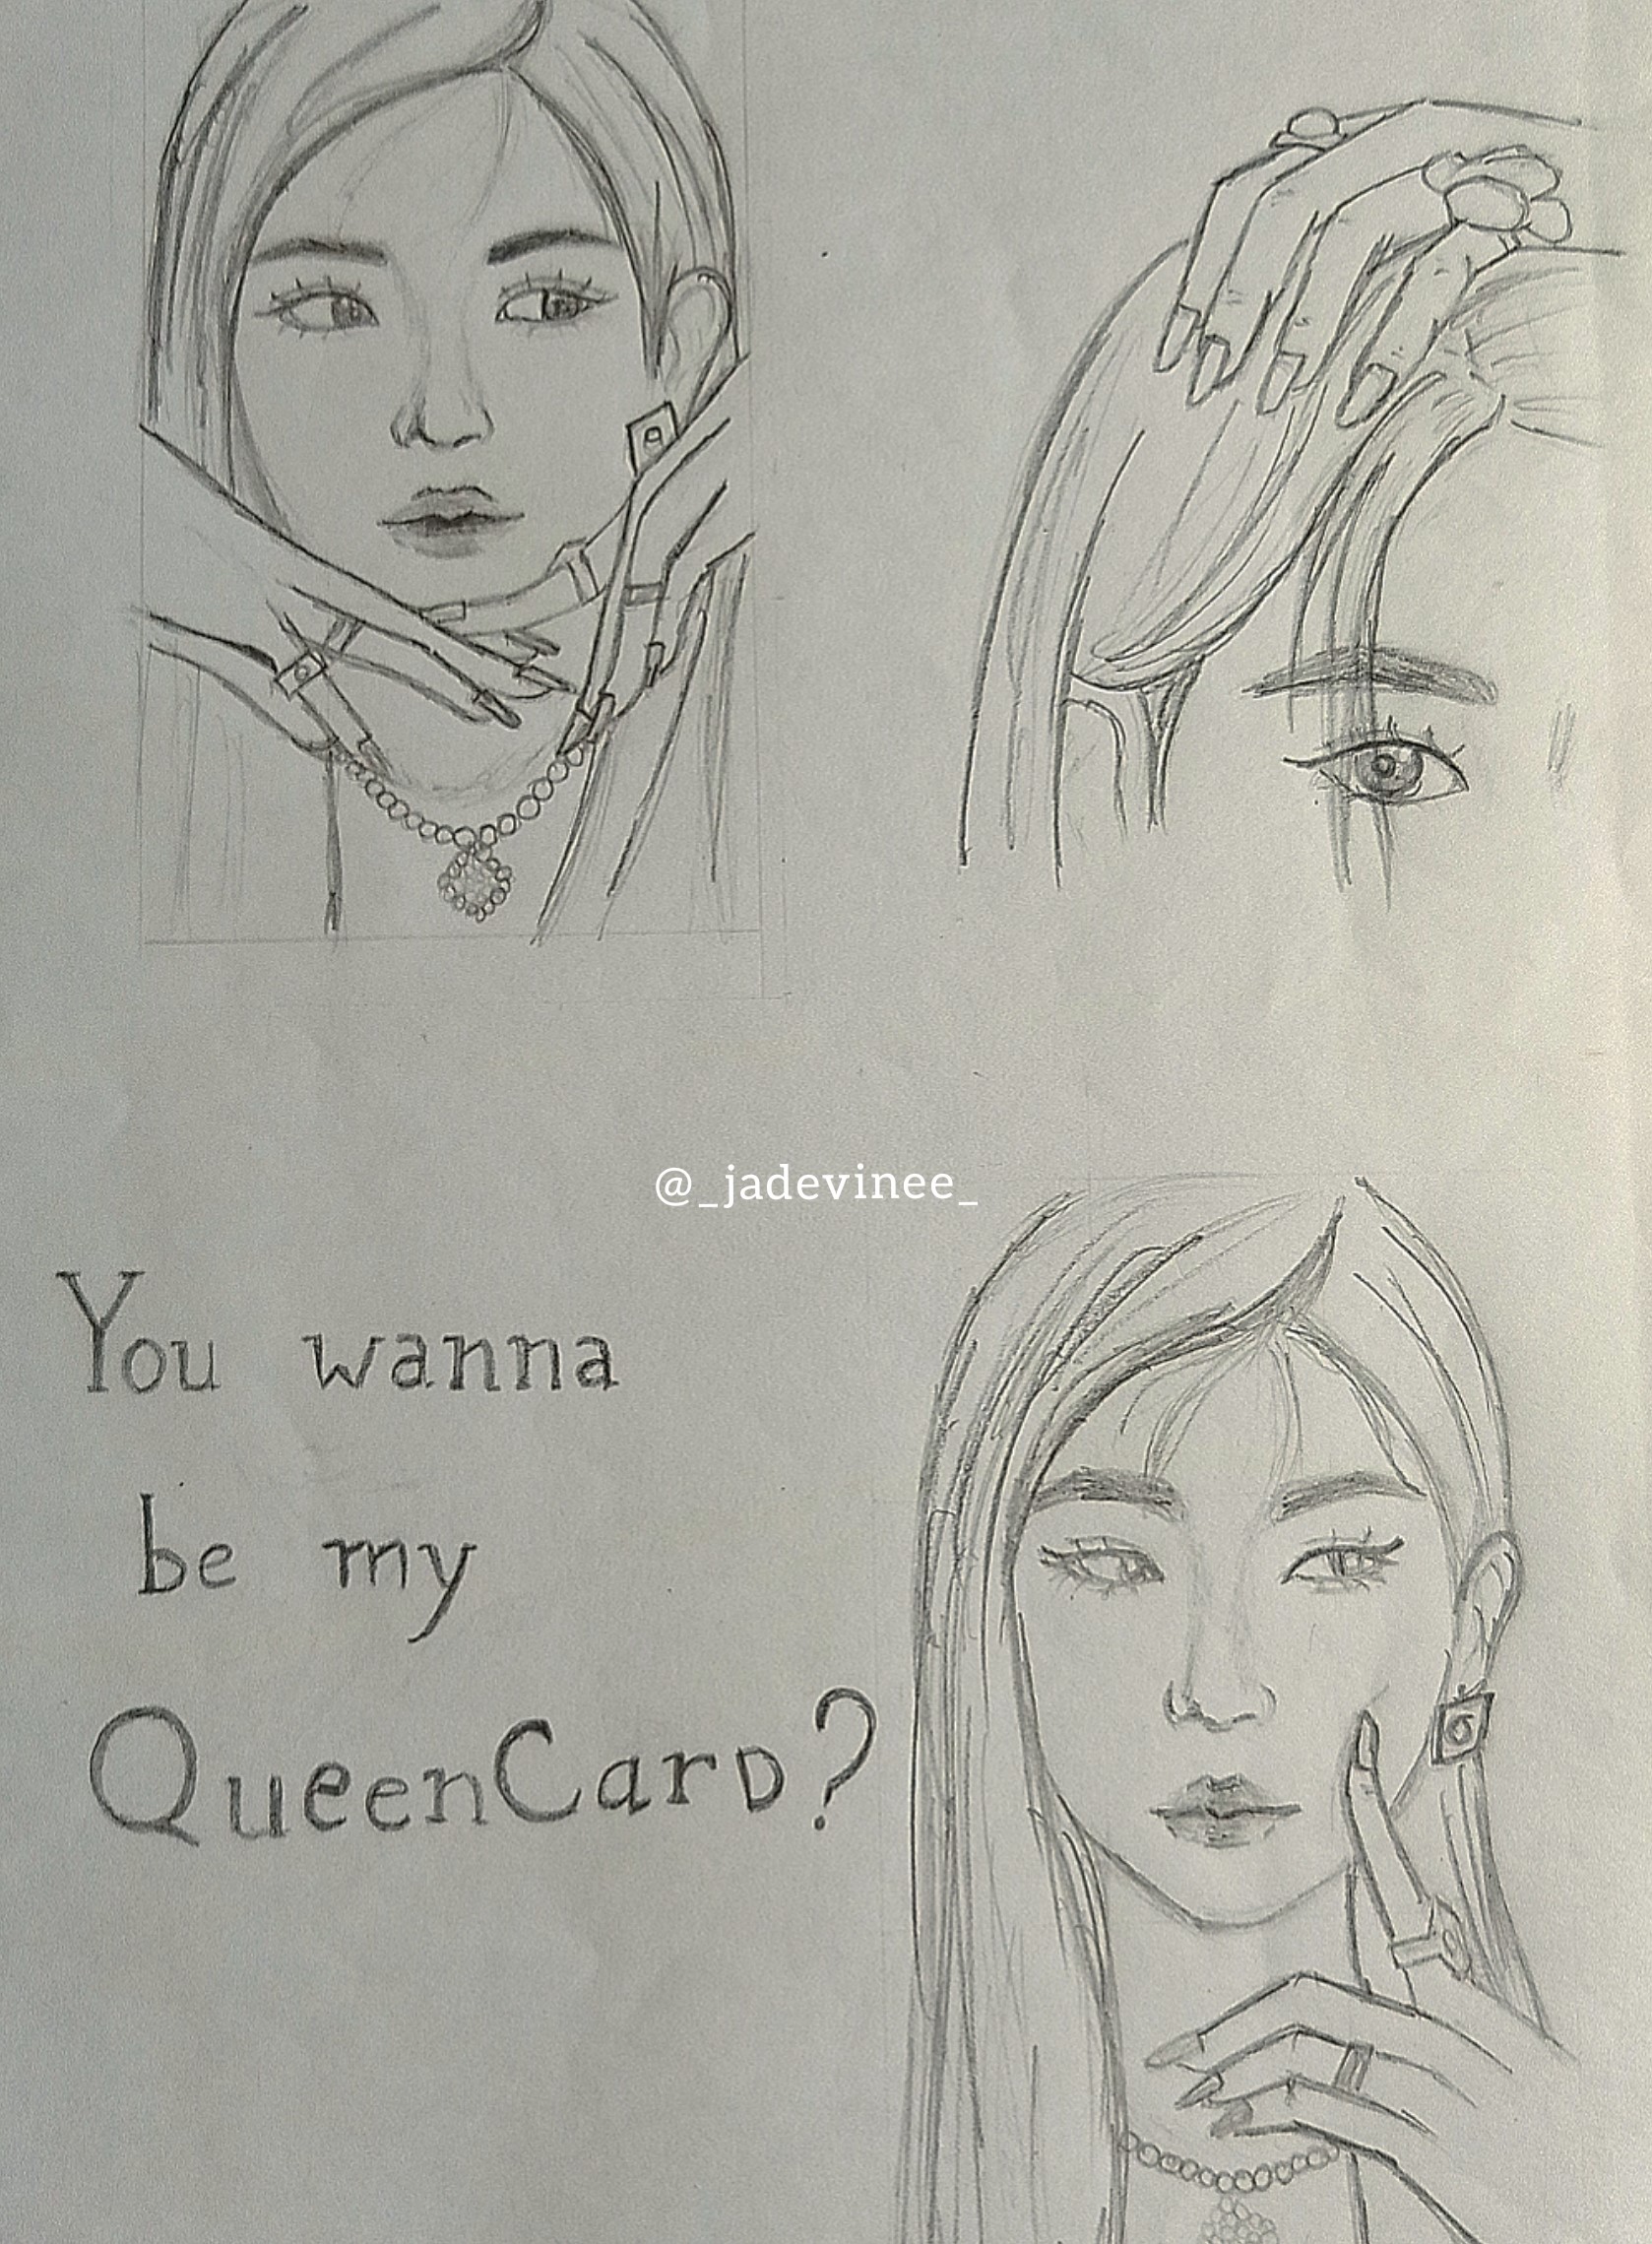 @_jadevinee_
You wanna
be my
QueenCarD?